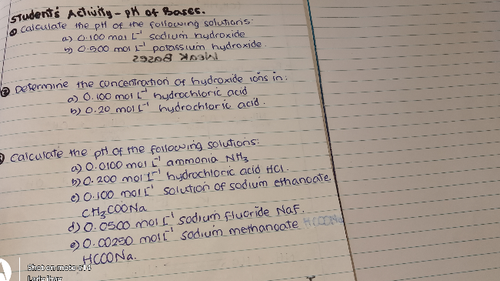 Students Activity - pH of Bases.
① Calculate the pH of the following solutions:
a) 0.100 mol L⁻¹ sodium hydroxide
b) 0.500 mol L⁻¹ potassium hydroxide
② Determine the concentration of hydroxide ions in:
a) 0.100 mol L⁻¹ hydrochloric acid
b) 0.20 mol L⁻¹ hydrochloric acid.
Calculate the pH of the following solutions:
a) 0.0100 mol L⁻¹ ammonia NH₃
b) 0.200 mol L⁻¹ hydrochloric acid HCl.
c) 0.100 mol L⁻¹ solution of sodium ethanoate
CH₃COONa
d) 0.0500 mol L⁻¹ sodium fluoride NaF.
e) 0.00250 mol L⁻¹ sodium methanoate
HCOONa.
Shot on moto